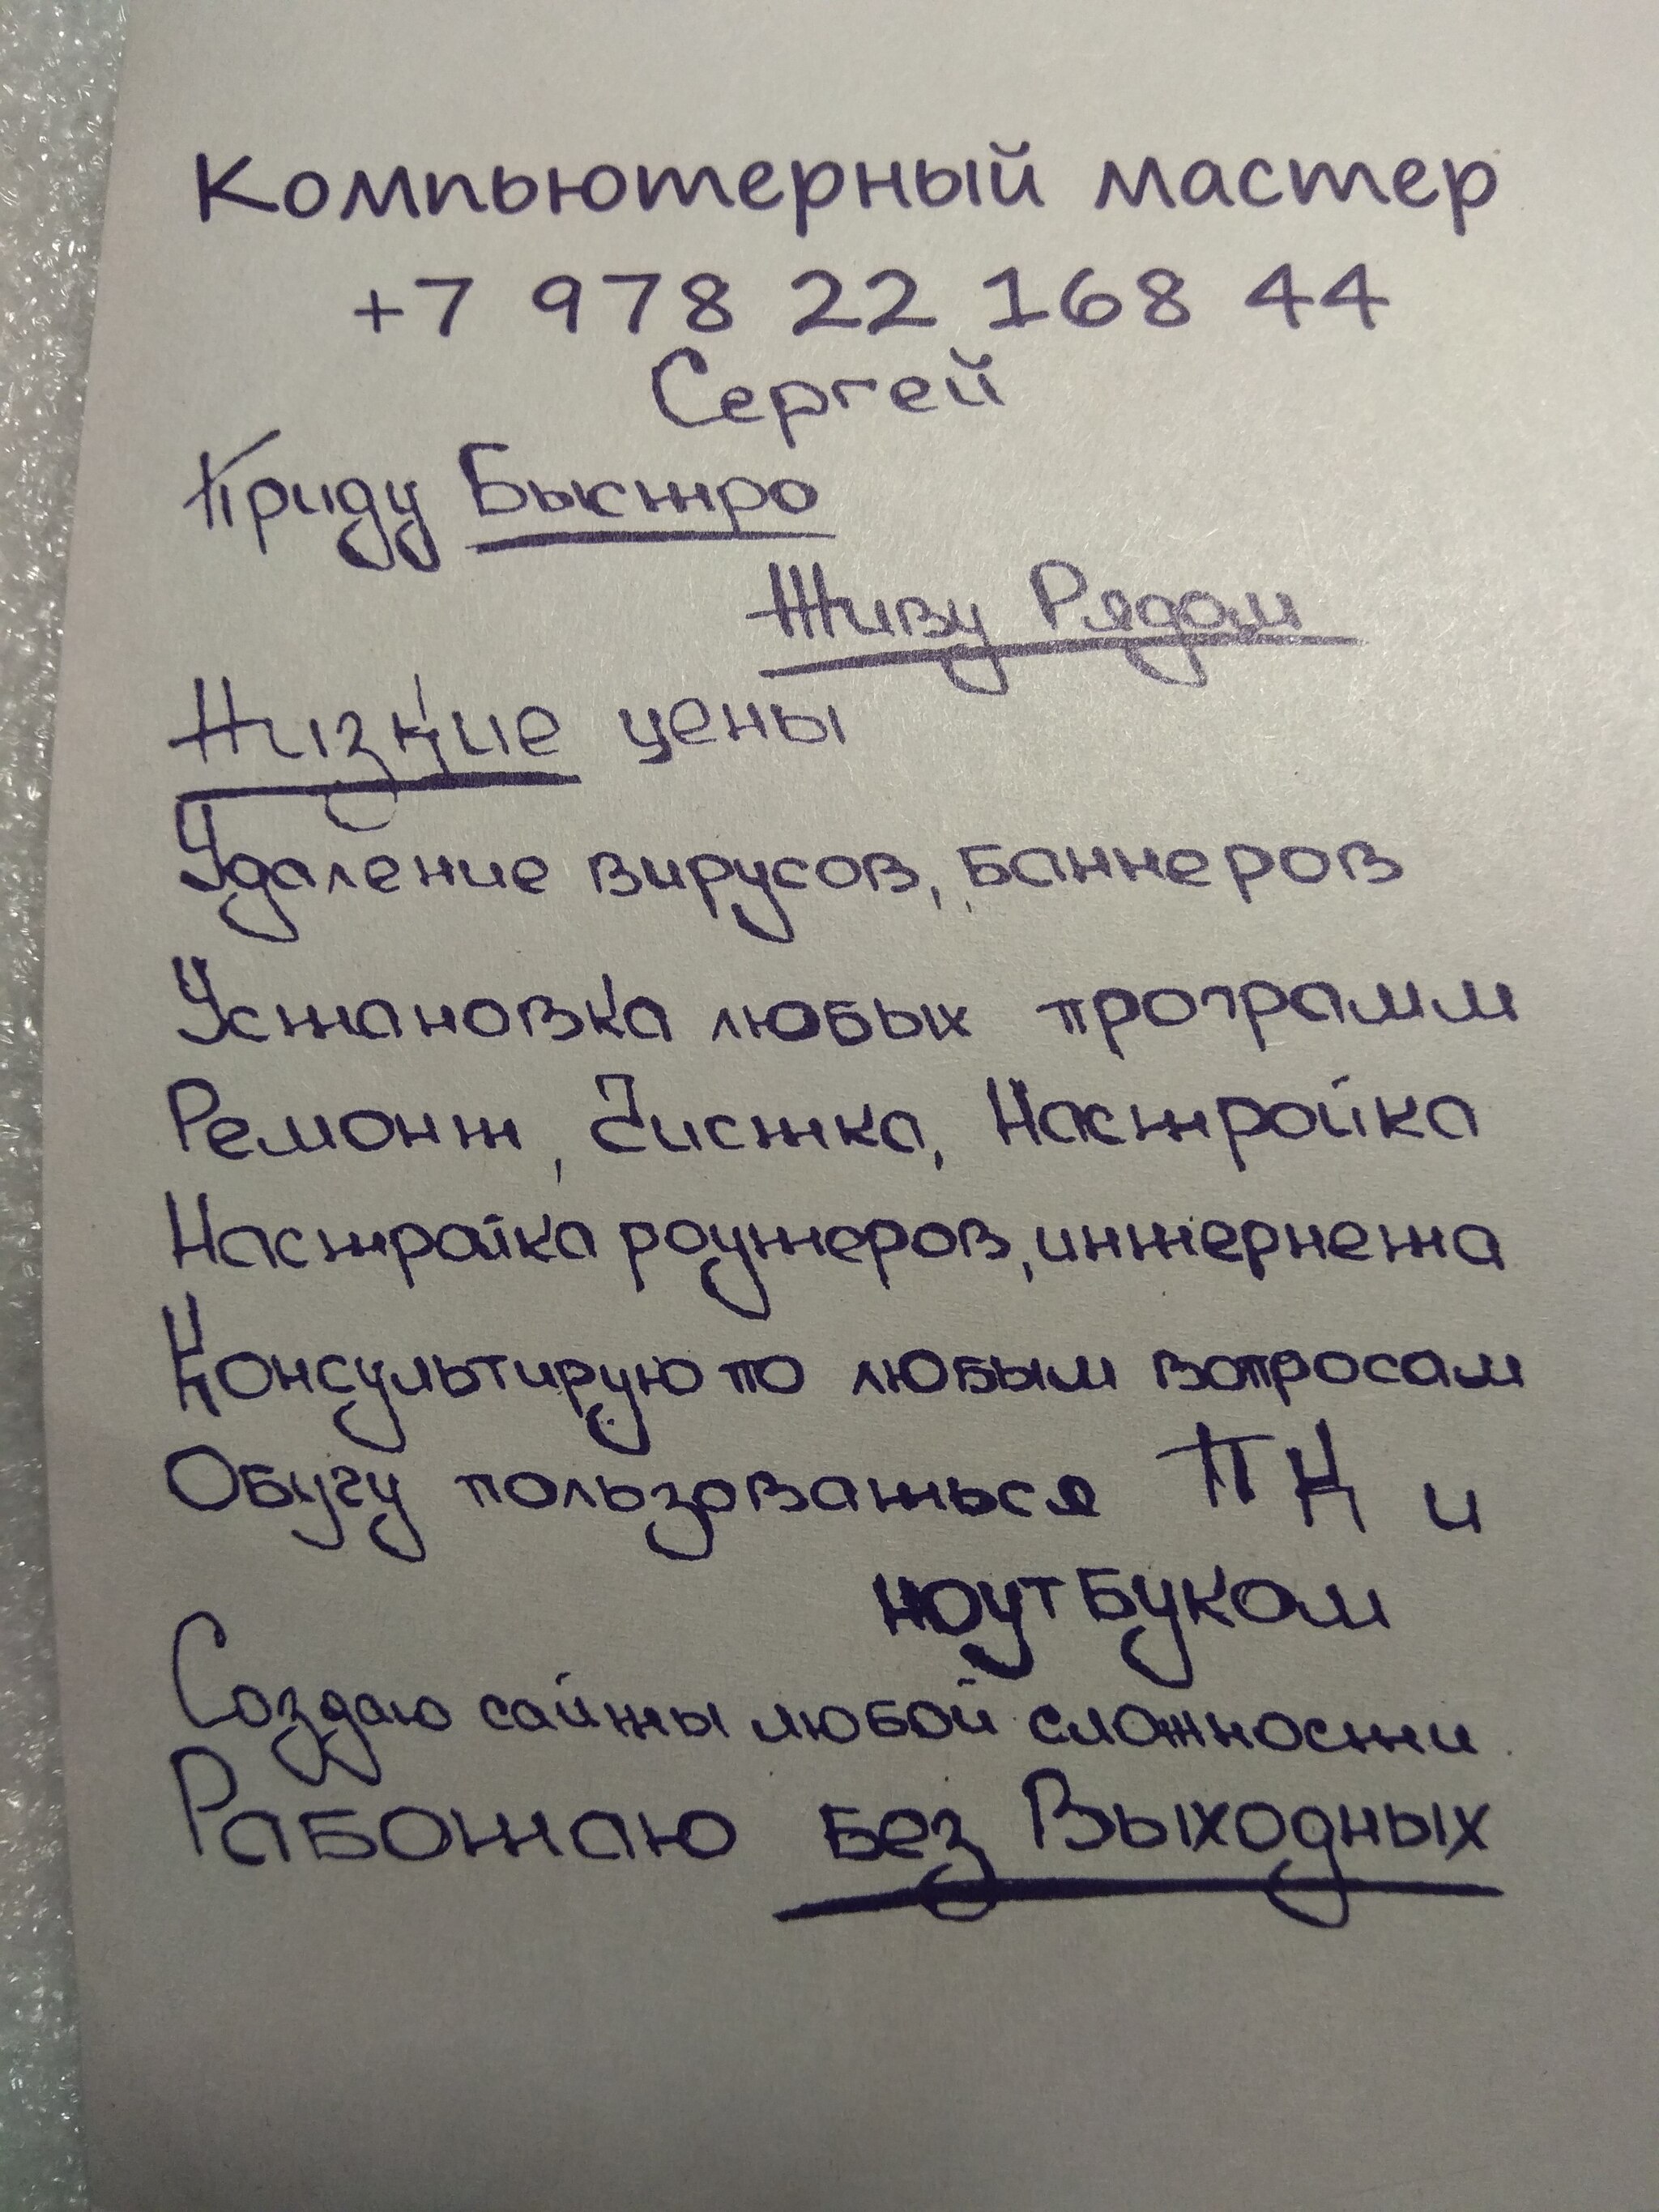 Компьютерный мастер
+7 978 22 168 44
Сергей
Приду Быстро
Живу Рядом
Низкие цены
Удаление вирусов, баннеров
Установка любых программ
Ремонт, Чистка, Настройка
Настройка роутеров, интернета
Консультирую по любым вопросам
Обучу пользоваться ПК и
ноутбуком
Создаю сайты любой сложности
Работаю без Выходных